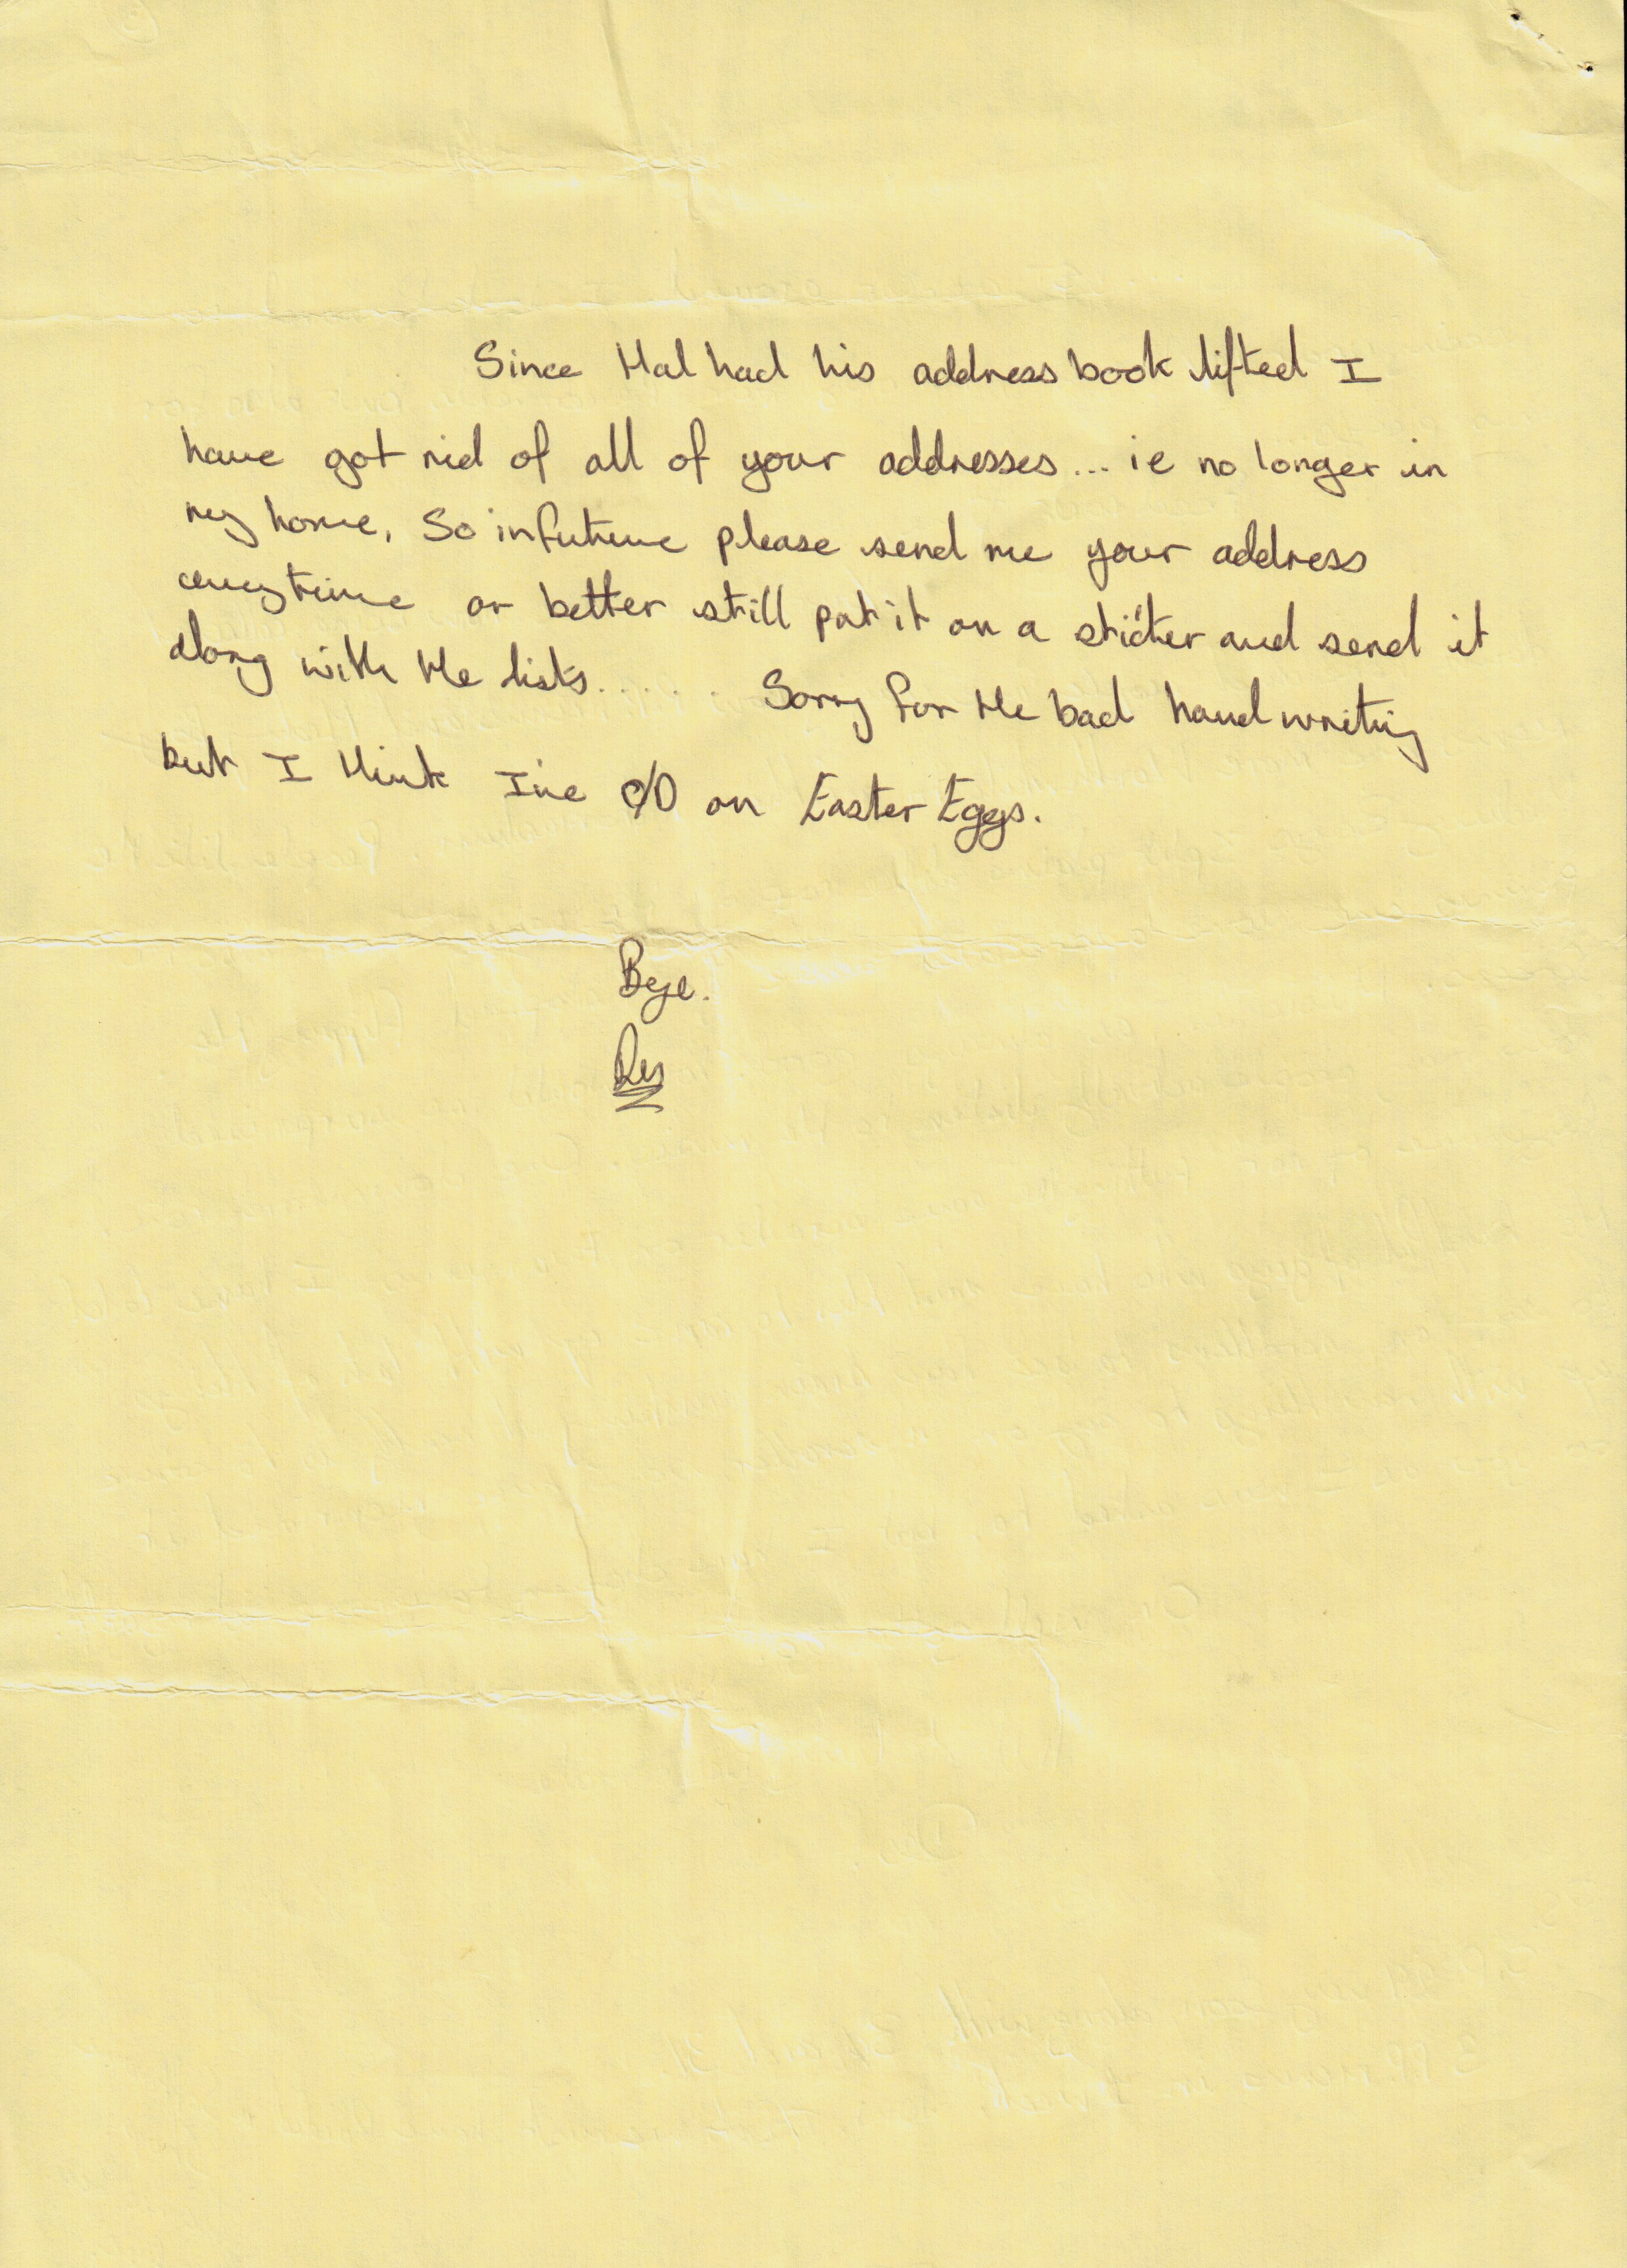 Since Hal had his address book lifted I
have got rid of all of your addresses... ie no longer in
my home. So in future please send me your address
everytime or better still put it on a sticker and send it
along with the lists...... Sorry for the bad handwriting
but I think I've O/D on Easter Eggs.
Bye.